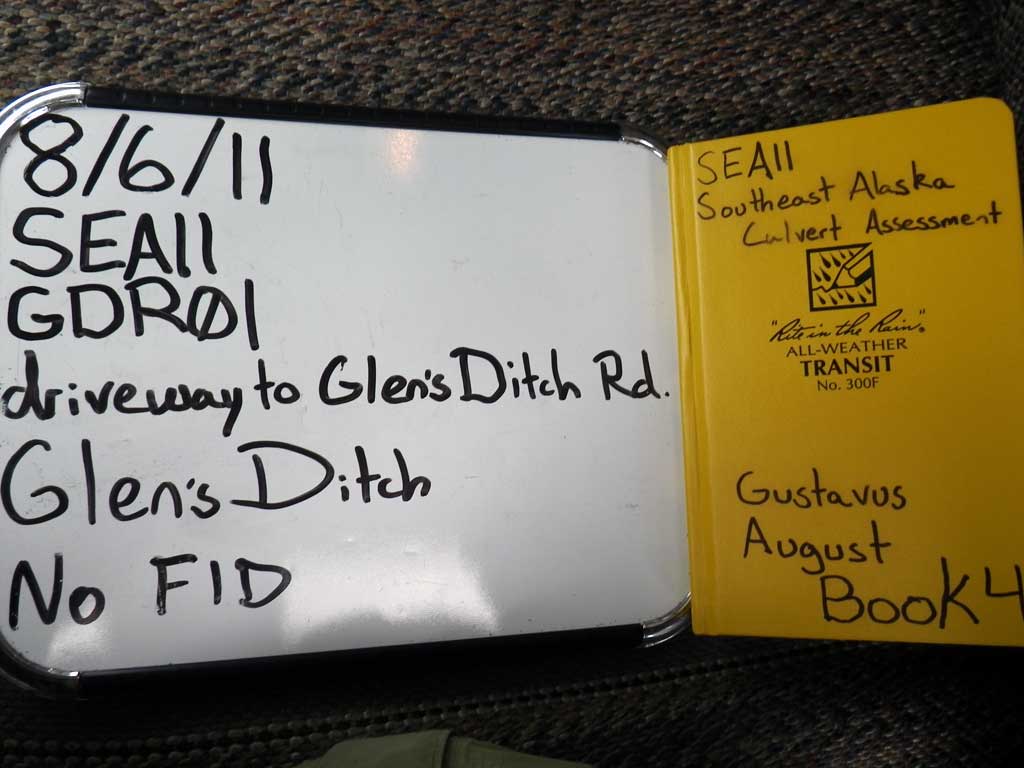 8/6/11
SEA11
GDRØ1
driveway to Glen's Ditch Rd.
Glen's Ditch
No FID
SEA11
Southeast Alaska
Culvert Assessment
"Rite in the Rain"®
ALL-WEATHER
TRANSIT
No. 300F
Gustavus
August
Book 4